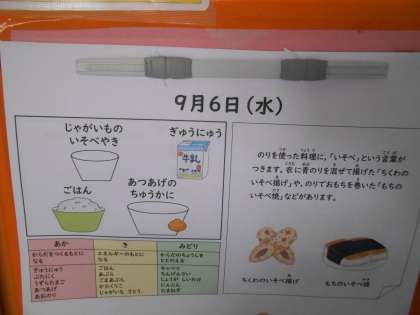 9月6日(水)
じゃがいもの
いそべやき
ぎゅうにゅう
牛乳
ごはん
あつあげの
ちゅうかに
のりを使った料理に、「いそべ」という言葉が
つきます。衣に青のりを混ぜて揚げた「ちくわの
いそべ揚げ」や、のりでおもちを巻いた「もちの
いそべ焼」などがあります。
ちくわのいそべ揚げ
もちのいそべ焼
あか
き
みどり
からだをつくるもとに
なる
エネルギーのもとに
なる
からだのちょうしを
ととのえる
ぎゅうにゅう
ぶたにく
うずらたまご
あつあげ
あおのり
ごはん
あぶら
ごまあぶら
かたくりこ
じゃがいも さとう
キャベツ
たけのこ
しょうが しいたけ
にんじん
たまねぎ